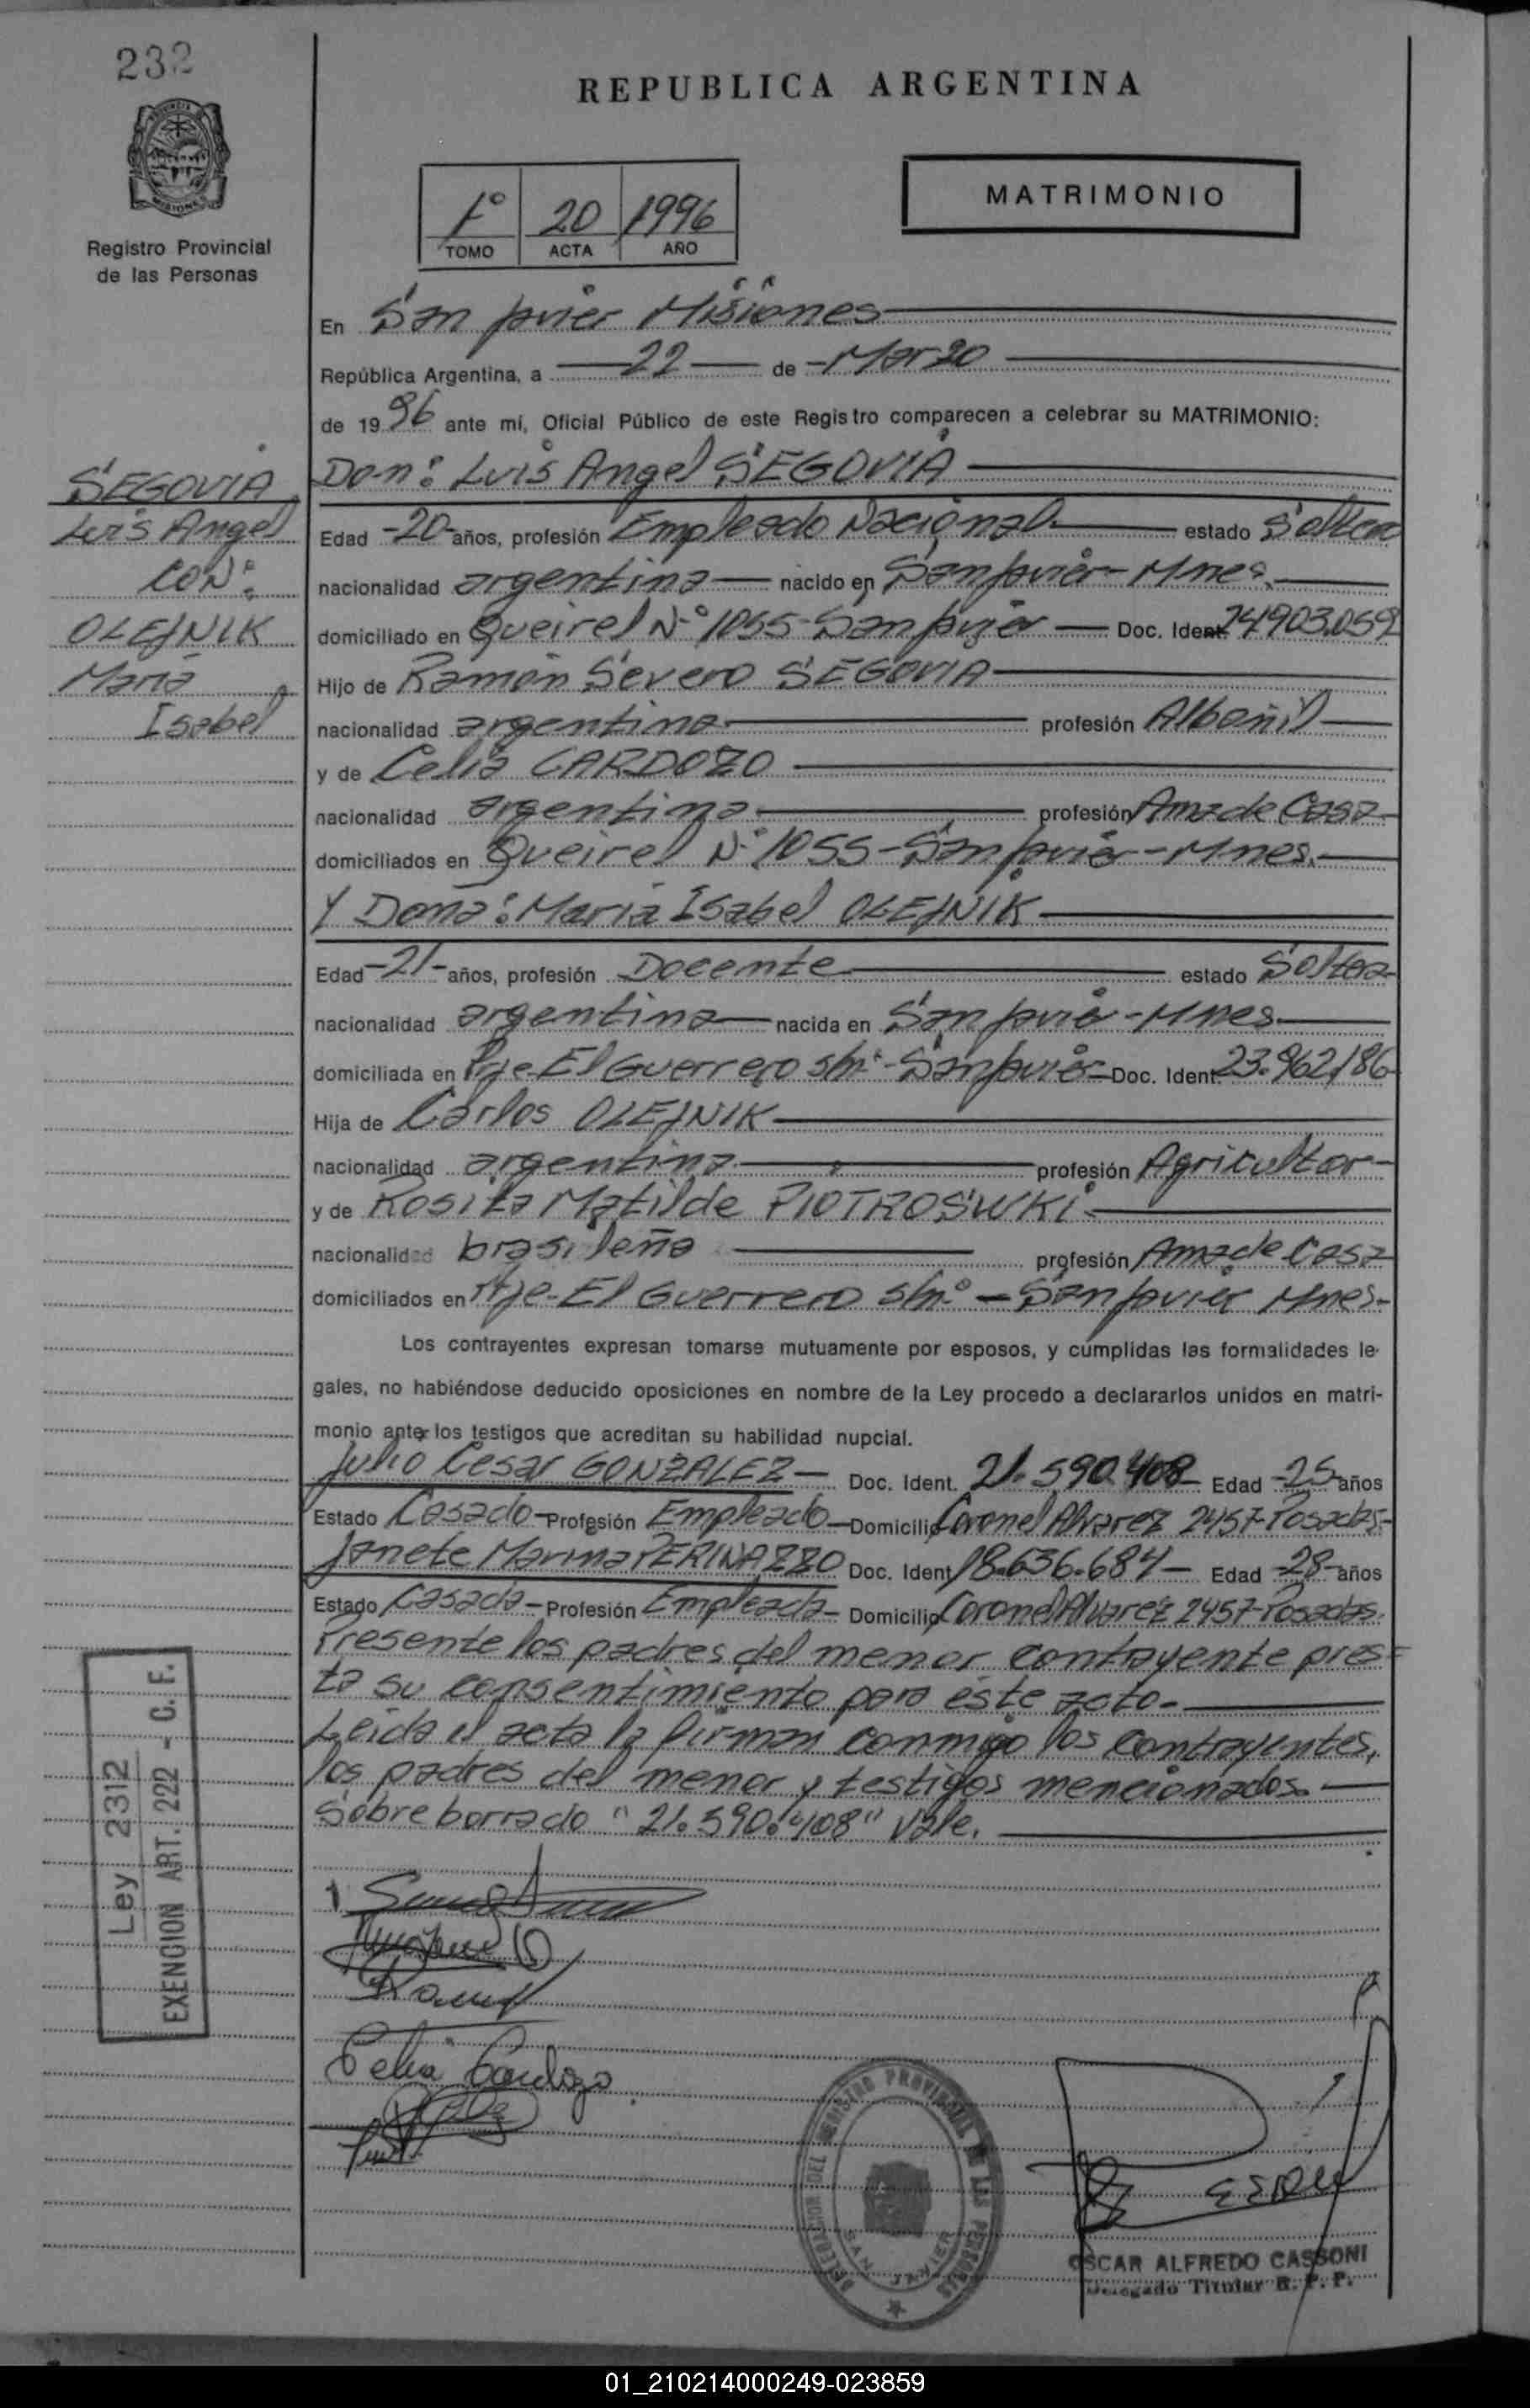 232
REPUBLICA ARGENTINA
MATRIMONIO
1º 20 1996
TOMO ACTA AÑO
PROVINCIA
MISIONES
Registro Provincial
de las Personas
En San Javier Misiones
República Argentina, a 22 de Marzo
de 1996 ante mí, Oficial Público de este Registro comparecen a celebrar su MATRIMONIO:
SEGOVIA
Luis Angel
CON:
OLEJNIK
Maria
Isabel
Don: Luis Angel SEGOVIA
Edad -20- años, profesión Empleado Nacional estado Soltero
nacionalidad argentina nacido en San Javier - Mnes.
domiciliado en Queirel Nº 1055 - San Javier Doc. Ident. 24.903.059
Hijo de Ramón Severo SEGOVIA
nacionalidad argentina profesión Albañil
y de Celia CARDOZO
nacionalidad argentina profesión Ama de Casa
domiciliados en Queirel Nº 1055 - San Javier - Mnes.
Y Doña: Maria Isabel OLEJNIK
Edad -21- años, profesión Docente estado Soltera
nacionalidad argentina nacida en San Javier - Mnes
domiciliada en Pje. El Guerrero s/nº - San Javier Doc. Ident. 23.962.186
Hija de Carlos OLEJNIK
nacionalidad argentina profesión Agricultor
y de Rosita Matilde PIOTROSWKI
nacionalidad brasileña profesión Ama de Casa
domiciliados en Pje. El Guerrero s/nº - San Javier Mnes-
Los contrayentes expresan tomarse mutuamente por esposos, y cumplidas las formalidades le-
gales, no habiéndose deducido oposiciones en nombre de la Ley procedo a declararlos unidos en matri-
monio ante los testigos que acreditan su habilidad nupcial.
Julio Cesar GONZALEZ - Doc. Ident. 21.590.408 Edad -25- años
Estado Casado - Profesión Empleado - Domicilio Coronel Alvarez 2457-Posadas-
Janete Marina PERINAZZO Doc. Ident. 18.636.684 - Edad -28- años
Estado Casada - Profesión Empleada - Domicilio Coronel Alvarez 2457-Posadas.
Presente los padres del menor contrayente pres=
ta su consentimiento para este acto.
Leida el acta la firman conmigo los contrayentes,
los padres del menor y testigos mencionados.
Sobre borrado "21.590.408" Vale.
Ley 2312
EXENCION ART. 222 - C. F.
Celia Cardozo
DELEGACION DEL REGISTRO PROVINCIAL DE LAS PERSONAS
SAN JAVIER
OSCAR ALFREDO CASSONI
Delegado Titular R. P. P.
01_210214000249-023859